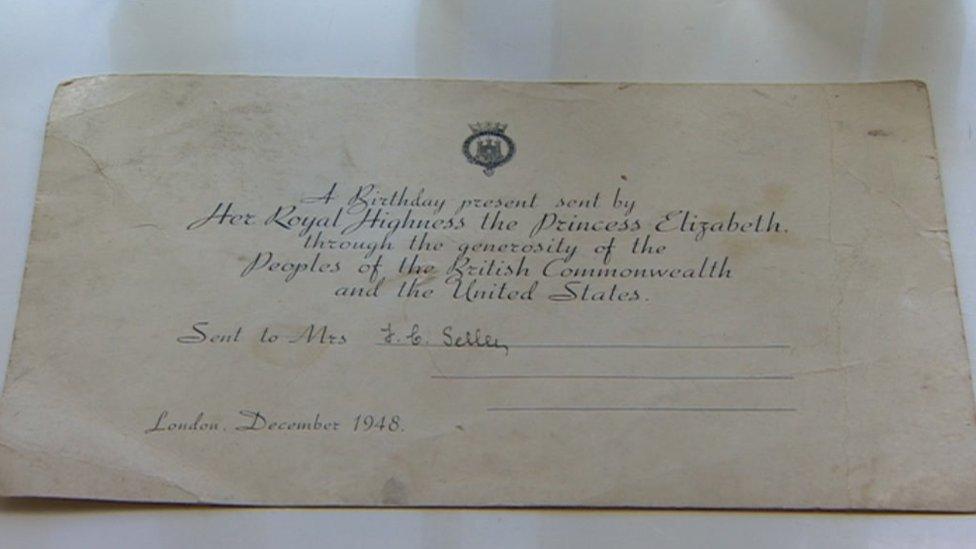 A Birthday present sent by
Her Royal Highness the Princess Elizabeth.
through the generosity of the
Peoples of the British Commonwealth
and the United States.
Sent to Mrs F. C. Selley
London. December 1948.